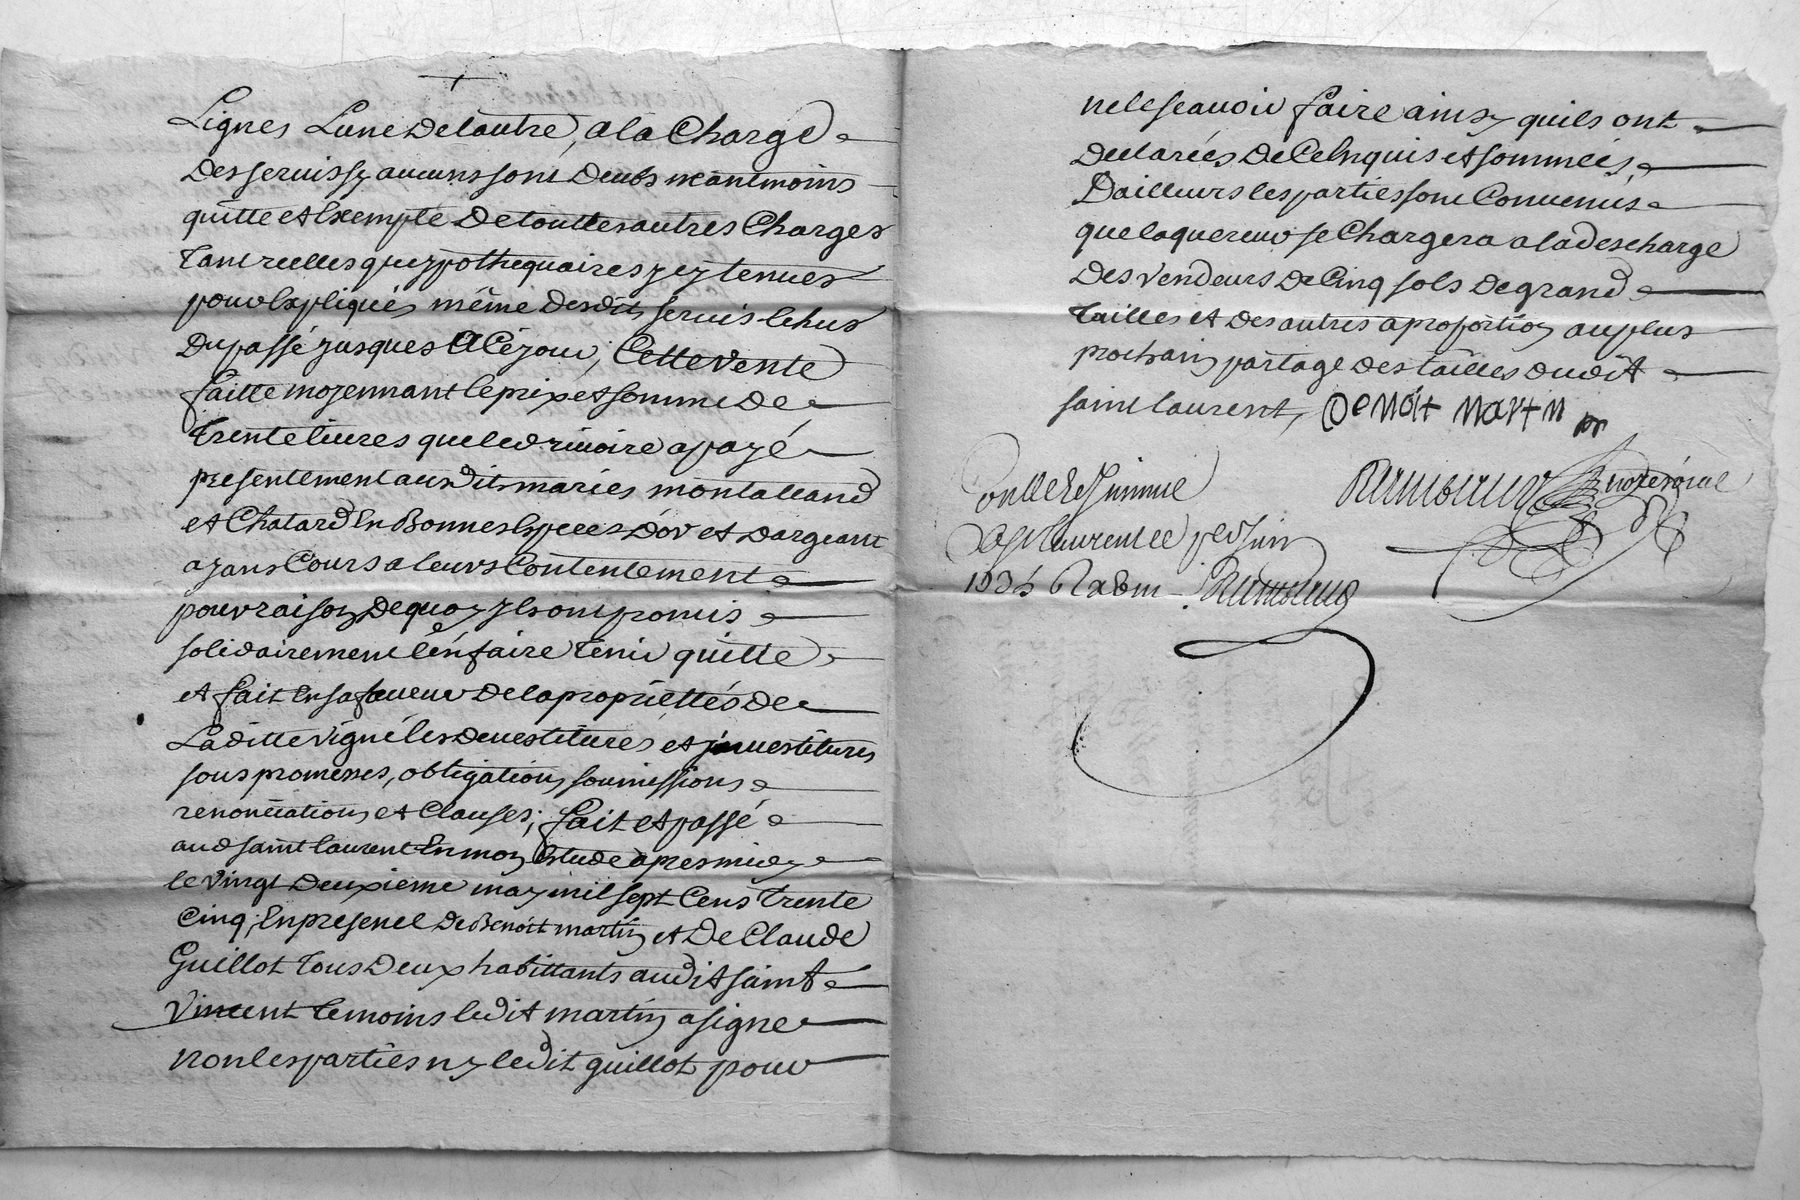 Lignes Lune Delautre, a la Charge
Des servis sy aucuns sont Deubs neantmoins
quitte et Exempte De touttes autres Charges
Tant reelles qu'ypothequaires y eytenues
pour Expliqués même Desdits servis Echus
Du passé jusques A Cejour, Cette vente
faitte moyennant le prix et somme de
Trente livres que led rivoire a payé
presentement ausdits mariés montalland
et Chatard En Bonnes Especes D'or et Dargeant
ayans Cours a leurs Contentement
pour raison De quoy Ils ont promis
solidairement l'en faire Tenir quitte
et fait En sa faveur De la propriettés de
Laditte vigne les Devestitures et jnvestitures
sous promesses, obligations soumissions
renontiations et Clauses; fait et passé
aud saint laurent En mon Estude apres midy
le vingt Deuxieme may mil sept Cens Trente
Cinq, En presence De Benoit martin et De Claude
Guillot Tous Deux habittants audit saint
Vincent Temoins ledit martin a signe
non les parties ny ledit guillot pour
ne le sçavoir faire ainsy quils ont
Declarées De Ce Enquis et sommées,
D'ailleurs les parties sont Convenues
que laquereur se Chargera a la descharge
Des vendeurs De Cinq sols De grand
Tailles et Des autres a proportion au plus
prochain partage Des tailles dudit
saint laurent, Benoit martin
Controllé
a St laurent le juin